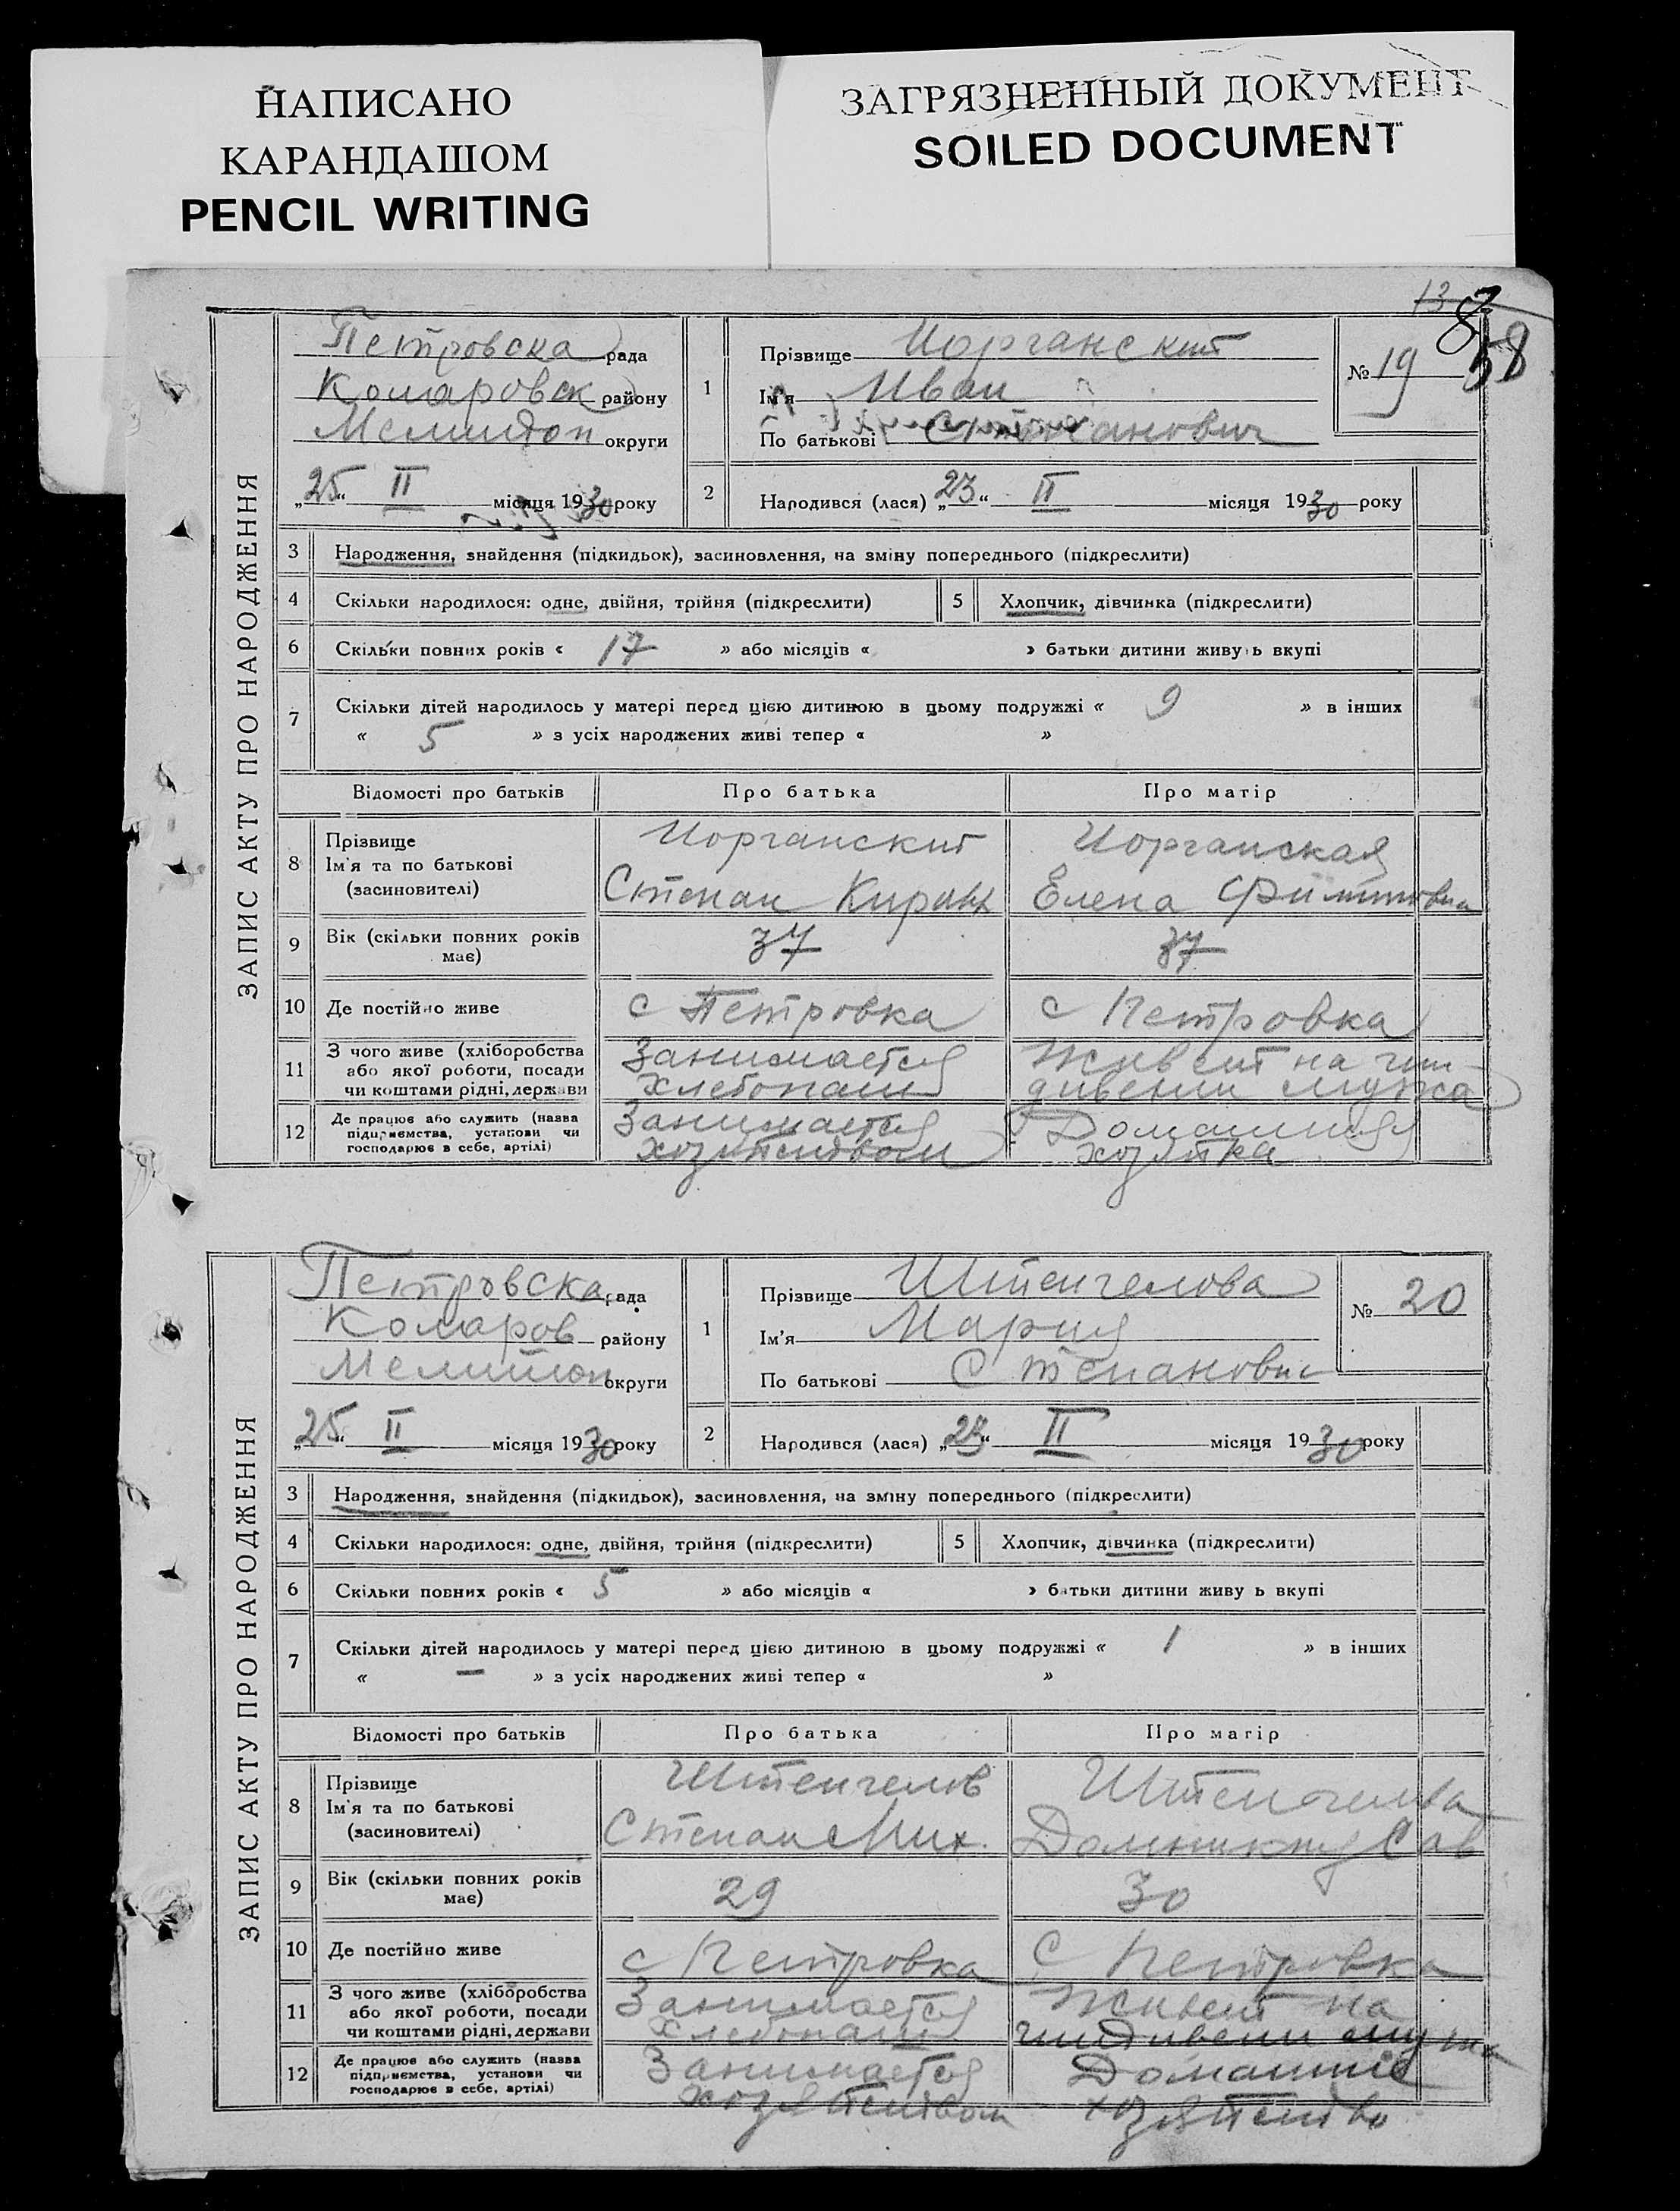 НАПИСАНО
КАРАНДАШОМ
PENCIL WRITING
ЗАГРЯЗНЕННЫЙ ДОКУМЕНТ
SOILED DOCUMENT
13
58
ЗАПИС АКТУ ПРО НАРОДЖЕННЯ
Петровска рада
Комаровск району
Мелитоп округи
„25“ II місяця 1930 року
1
Прізвище Иорганский
Ім'я Иван
По батькові Степанович
№ 19
2
Народився (лася) „23“ II місяця 1930 року
3 Народження, знайдення (підкидьок), засиновлення, на зміну попереднього (підкреслити)
4 Скільки народилося: одне, двійня, трійня (підкреслити)
5 Хлопчик, дівчинка (підкреслити)
6 Скільки повних років « 17 » або місяців « » батьки дитини живуть вкупі
7 Скільки дітей народилось у матері перед цією дитиною в цьому подружжі « 9 » в інших
« 5 » з усіх народжених живі тепер « »
Відомості про батьків Про батька Про матір
8 Прізвище
Ім'я та по батькові
(засиновителі)
Иорганский
Степан
Иорганская
Елена
9 Вік (скільки повних років
має)
37
37
10 Де постійно живе
с Петровка
с Петровка
11 З чого живе (хліборобства
або якої роботи, посади
чи коштами рідні, держави
Занимается
хлебопаш
Живет на иж-
дивении мужа
12 Де працює або служить (назва
підприємства, установи чи
господарює в себе, артілі)
Занимается
хозяйством
Домашняя
хозяйка
ЗАПИС АКТУ ПРО НАРОДЖЕННЯ
Петровска рада
Комаров району
Мелитоп округи
„25“ II місяця 1930 року
1
Прізвище Штенгелова
Ім'я Мария
По батькові Степанович
№ 20
2
Народився (лася) „23“ II місяця 1930 року
3 Народження, знайдення (підкидьок), засиновлення, на зміну попереднього (підкреслити)
4 Скільки народилося: одне, двійня, трійня (підкреслити)
5 Хлопчик, дівчинка (підкреслити)
6 Скільки повних років « 5 » або місяців « » батьки дитини живуть вкупі
7 Скільки дітей народилось у матері перед цією дитиною в цьому подружжі « 1 » в інших
« — » з усіх народжених живі тепер « »
Відомості про батьків Про батька Про матір
8 Прізвище
Ім'я та по батькові
(засиновителі)
Штенгелов
Степан Мих.
Штенгелова
Сав
9 Вік (скільки повних років
має)
29
30
10 Де постійно живе
с Петровка
с Петровка
11 З чого живе (хліборобства
або якої роботи, посади
чи коштами рідні, держави
Занимается
хлебопаш
Живет на
иждивении мужа
12 Де працює або служить (назва
підприємства, установи чи
господарює в себе, артілі)
Занимается
хозяйством
Домашние
хозяйство